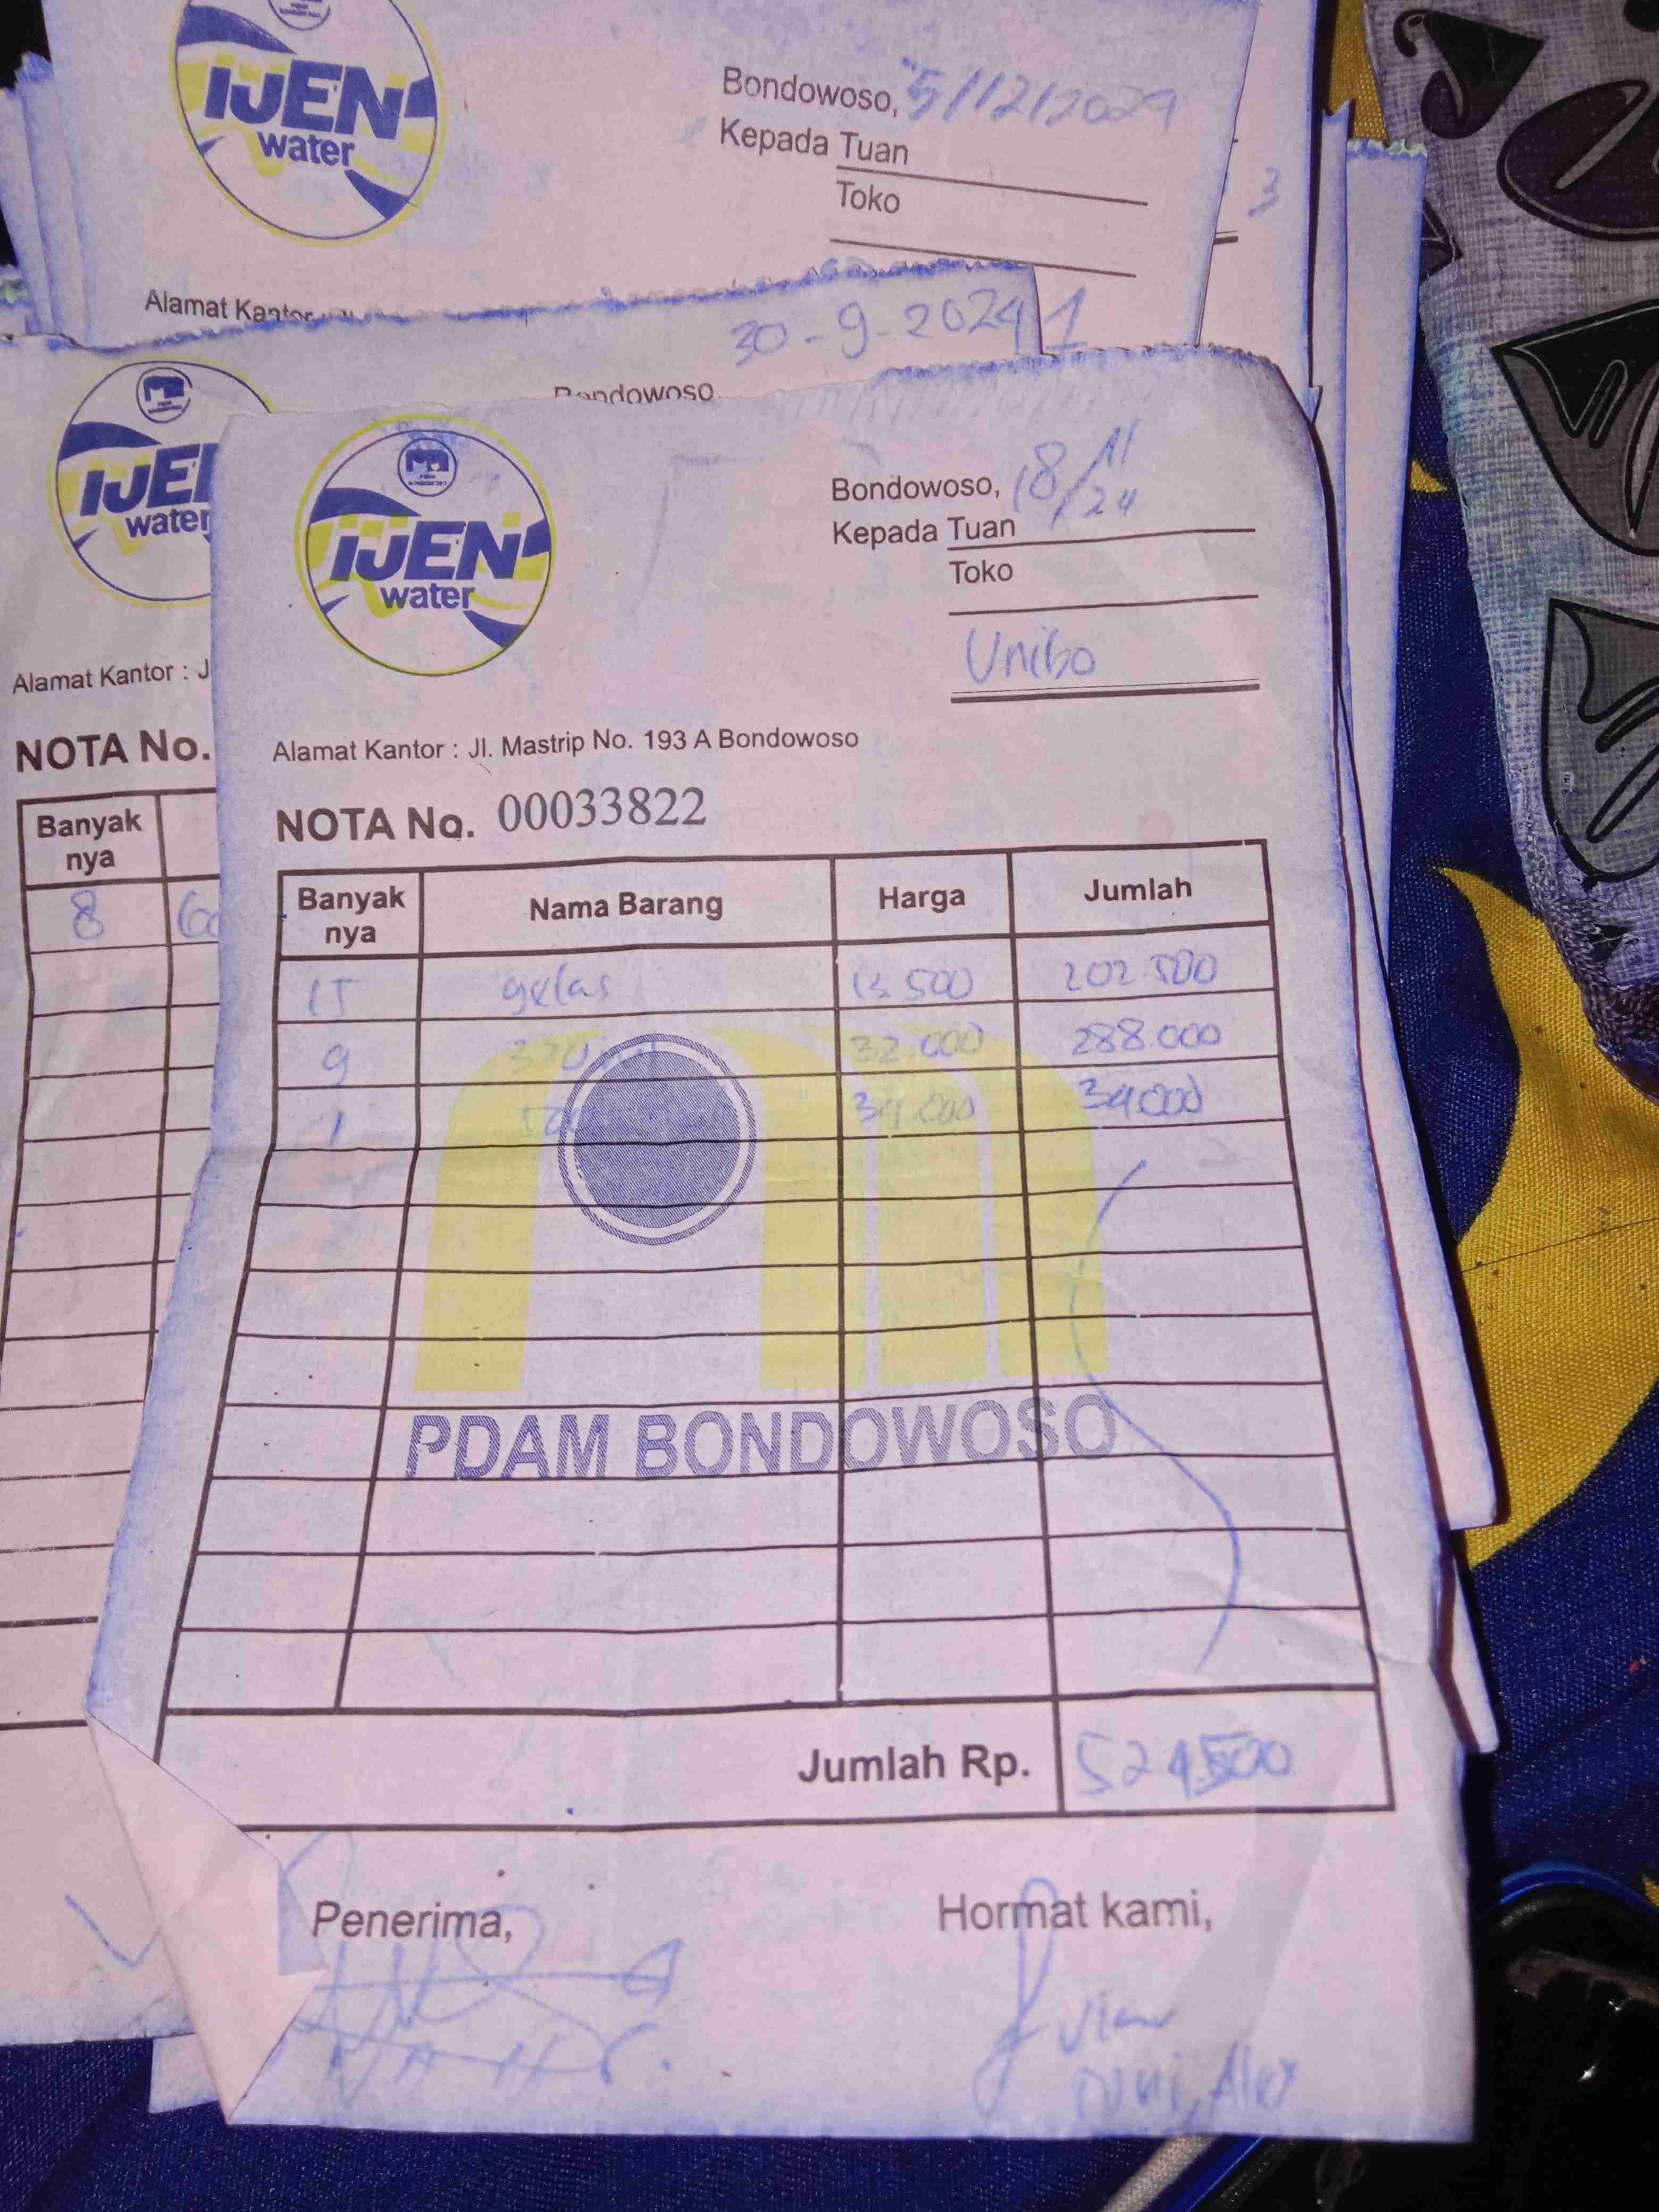 IJEN
water
Bondowoso, 5/12/2024
Kepada Tuan
Toko
3
Alamat Kantor
30-9-2024 1
Bondowoso,
IJEN
water
Alamat Kantor : J
NOTA No.
Banyak
nya
8
IJEN
water
Bondowoso, 18/11/24
Kepada Tuan
Toko
Unibo
Alamat Kantor : Jl. Mastrip No. 193 A Bondowoso
NOTA No. 00033822
Banyak nya Nama Barang Harga Jumlah
15 gelas 13.500 202.500
9 32.000 288.000
1 34.000 34.000
PDAM BONDOWOSO
Jumlah Rp. 524.500
Penerima, Hormat kami,